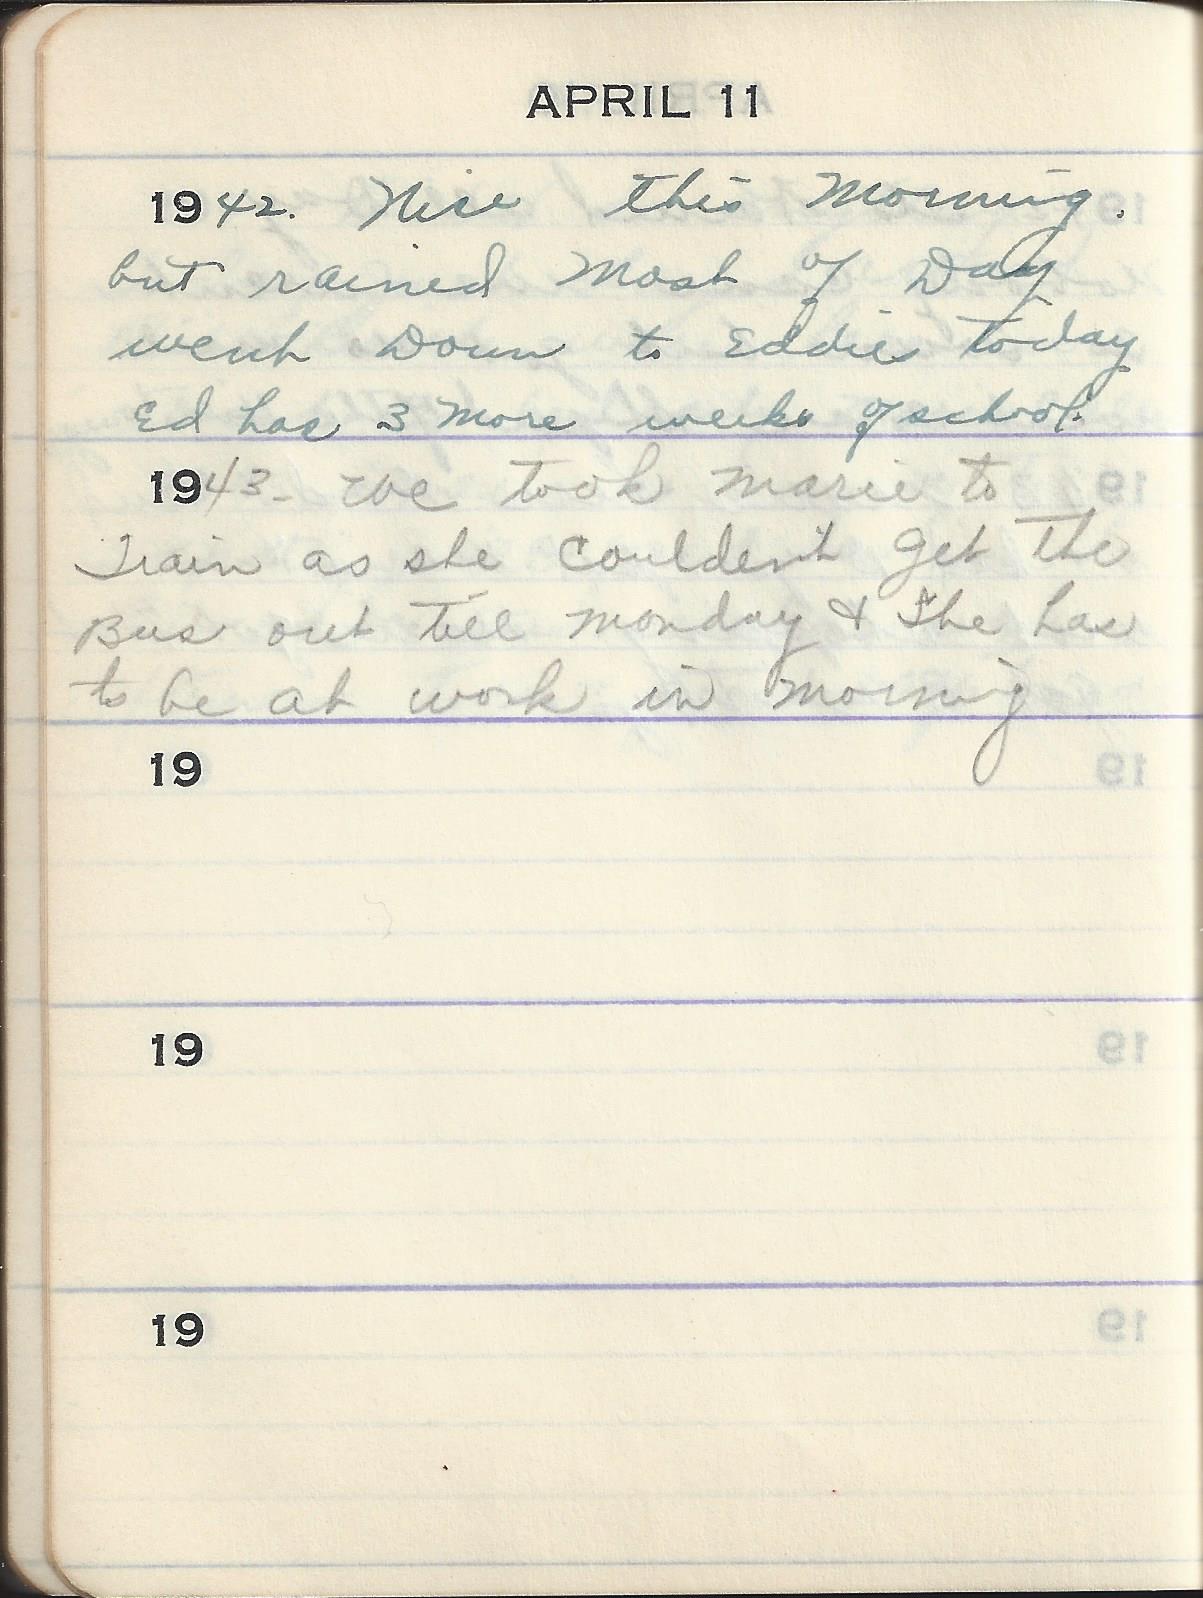 APRIL 11
1942. Nice this Morning.
but rained Most of Day
went Down to Eddies today
Ed has 3 More weeks of school.
1943- we took marie to
Train as she couldent get the
Bus out till monday & she has
to be at work in morning
19
19
19